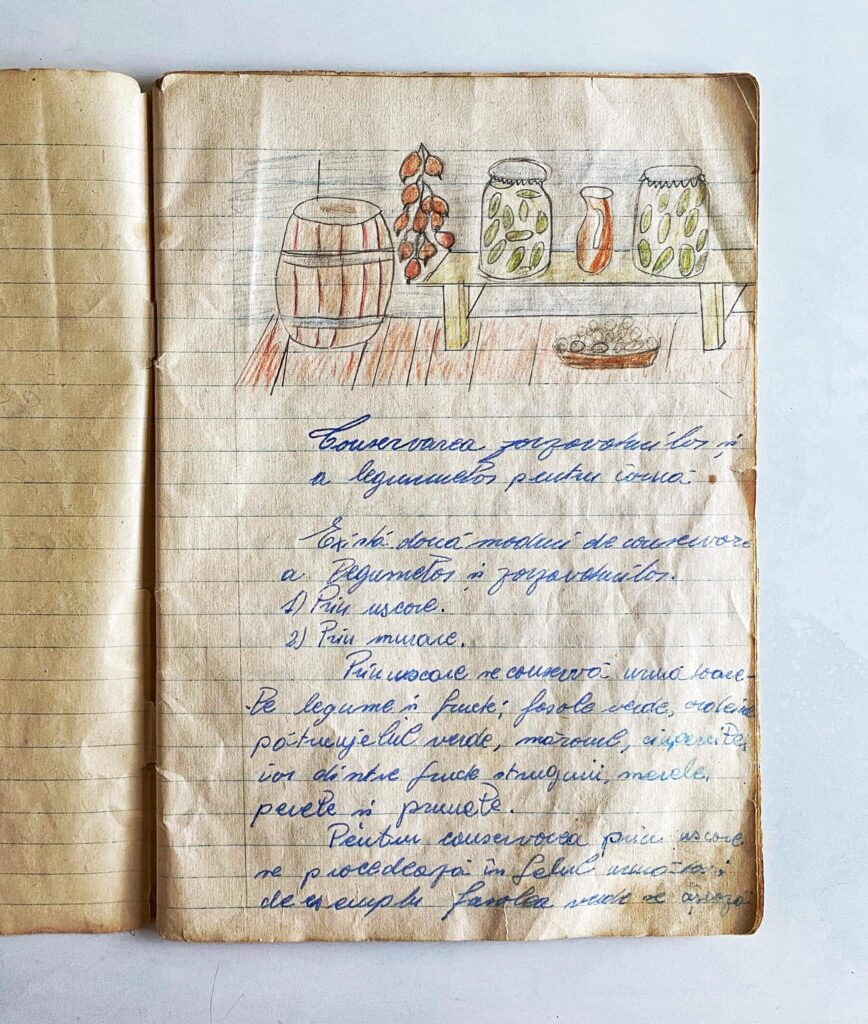 Conservarea zarzavaturilor și
a legumelor pentru iarnă
Există două moduri de conservare
a legumelor și zarzavaturilor.
1) Prin uscare.
2) Prin murare.
Prin uscare se conservă următoare-
le legume și fructe; fasole verde,
pătrunjelul verde, mărarul, ciupercile,
iar dintre fructe strugurii, merele,
perele și prunele.
Pentru conservarea prin uscare
se procedează în felul următor;
de exemplu fasolea verde se așează